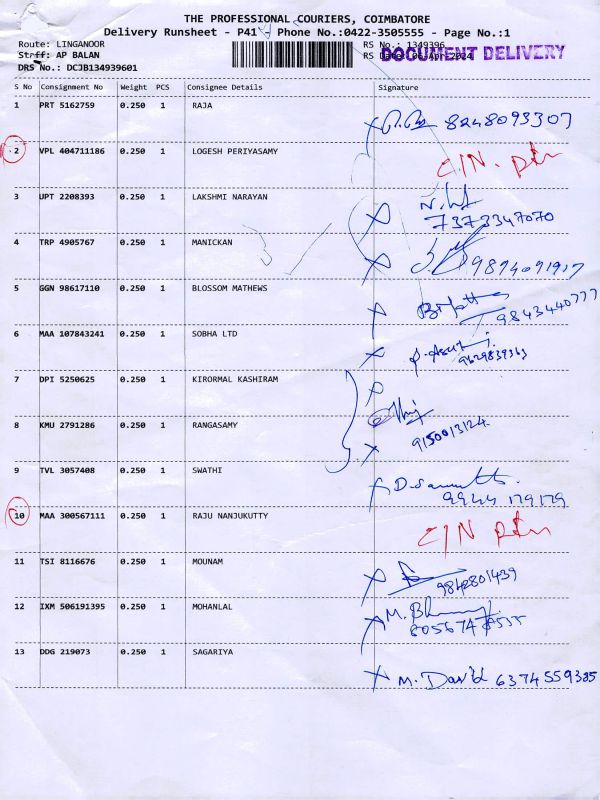 THE PROFESSIONAL COURIERS, COIMBATORE
Delivery Runsheet - P41 Phone No.:0422-3505555 - Page No.:1
Route: LINGANOOR RS No.: 1349396
Strff: AP BALAN RS Date: 06-Apr-2024 DOCUMENT DELIVERY
DRS No.: DCJB134939601
S No Consignment No Weight PCS Consignee Details Signature
1 PRT 5162759 0.250 1 RAJA 8248093307
2 VPL 404711186 0.250 1 LOGESH PERIYASAMY C/N.
3 UPT 2208393 0.250 1 LAKSHMI NARAYAN
7373347070
4 TRP 4905767 0.250 1 MANICKAN 9894091917
5 GGN 98617110 0.250 1 BLOSSOM MATHEWS
9843440777
6 MAA 107843241 0.250 1 SOBHA LTD
9629839363
7 DPI 5250625 0.250 1 KIRORMAL KASHIRAM
8 KMU 2791286 0.250 1 RANGASAMY
9150013124
9 TVL 3057408 0.250 1 SWATHI
9944 179179
10 MAA 300567111 0.250 1 RAJU NANJUKUTTY C/N
11 TSI 8116676 0.250 1 MOUNAM
9842801439
12 IXM 506191395 0.250 1 MOHANLAL
13 DDG 219073 0.250 1 SAGARIYA
M. David 6374559385